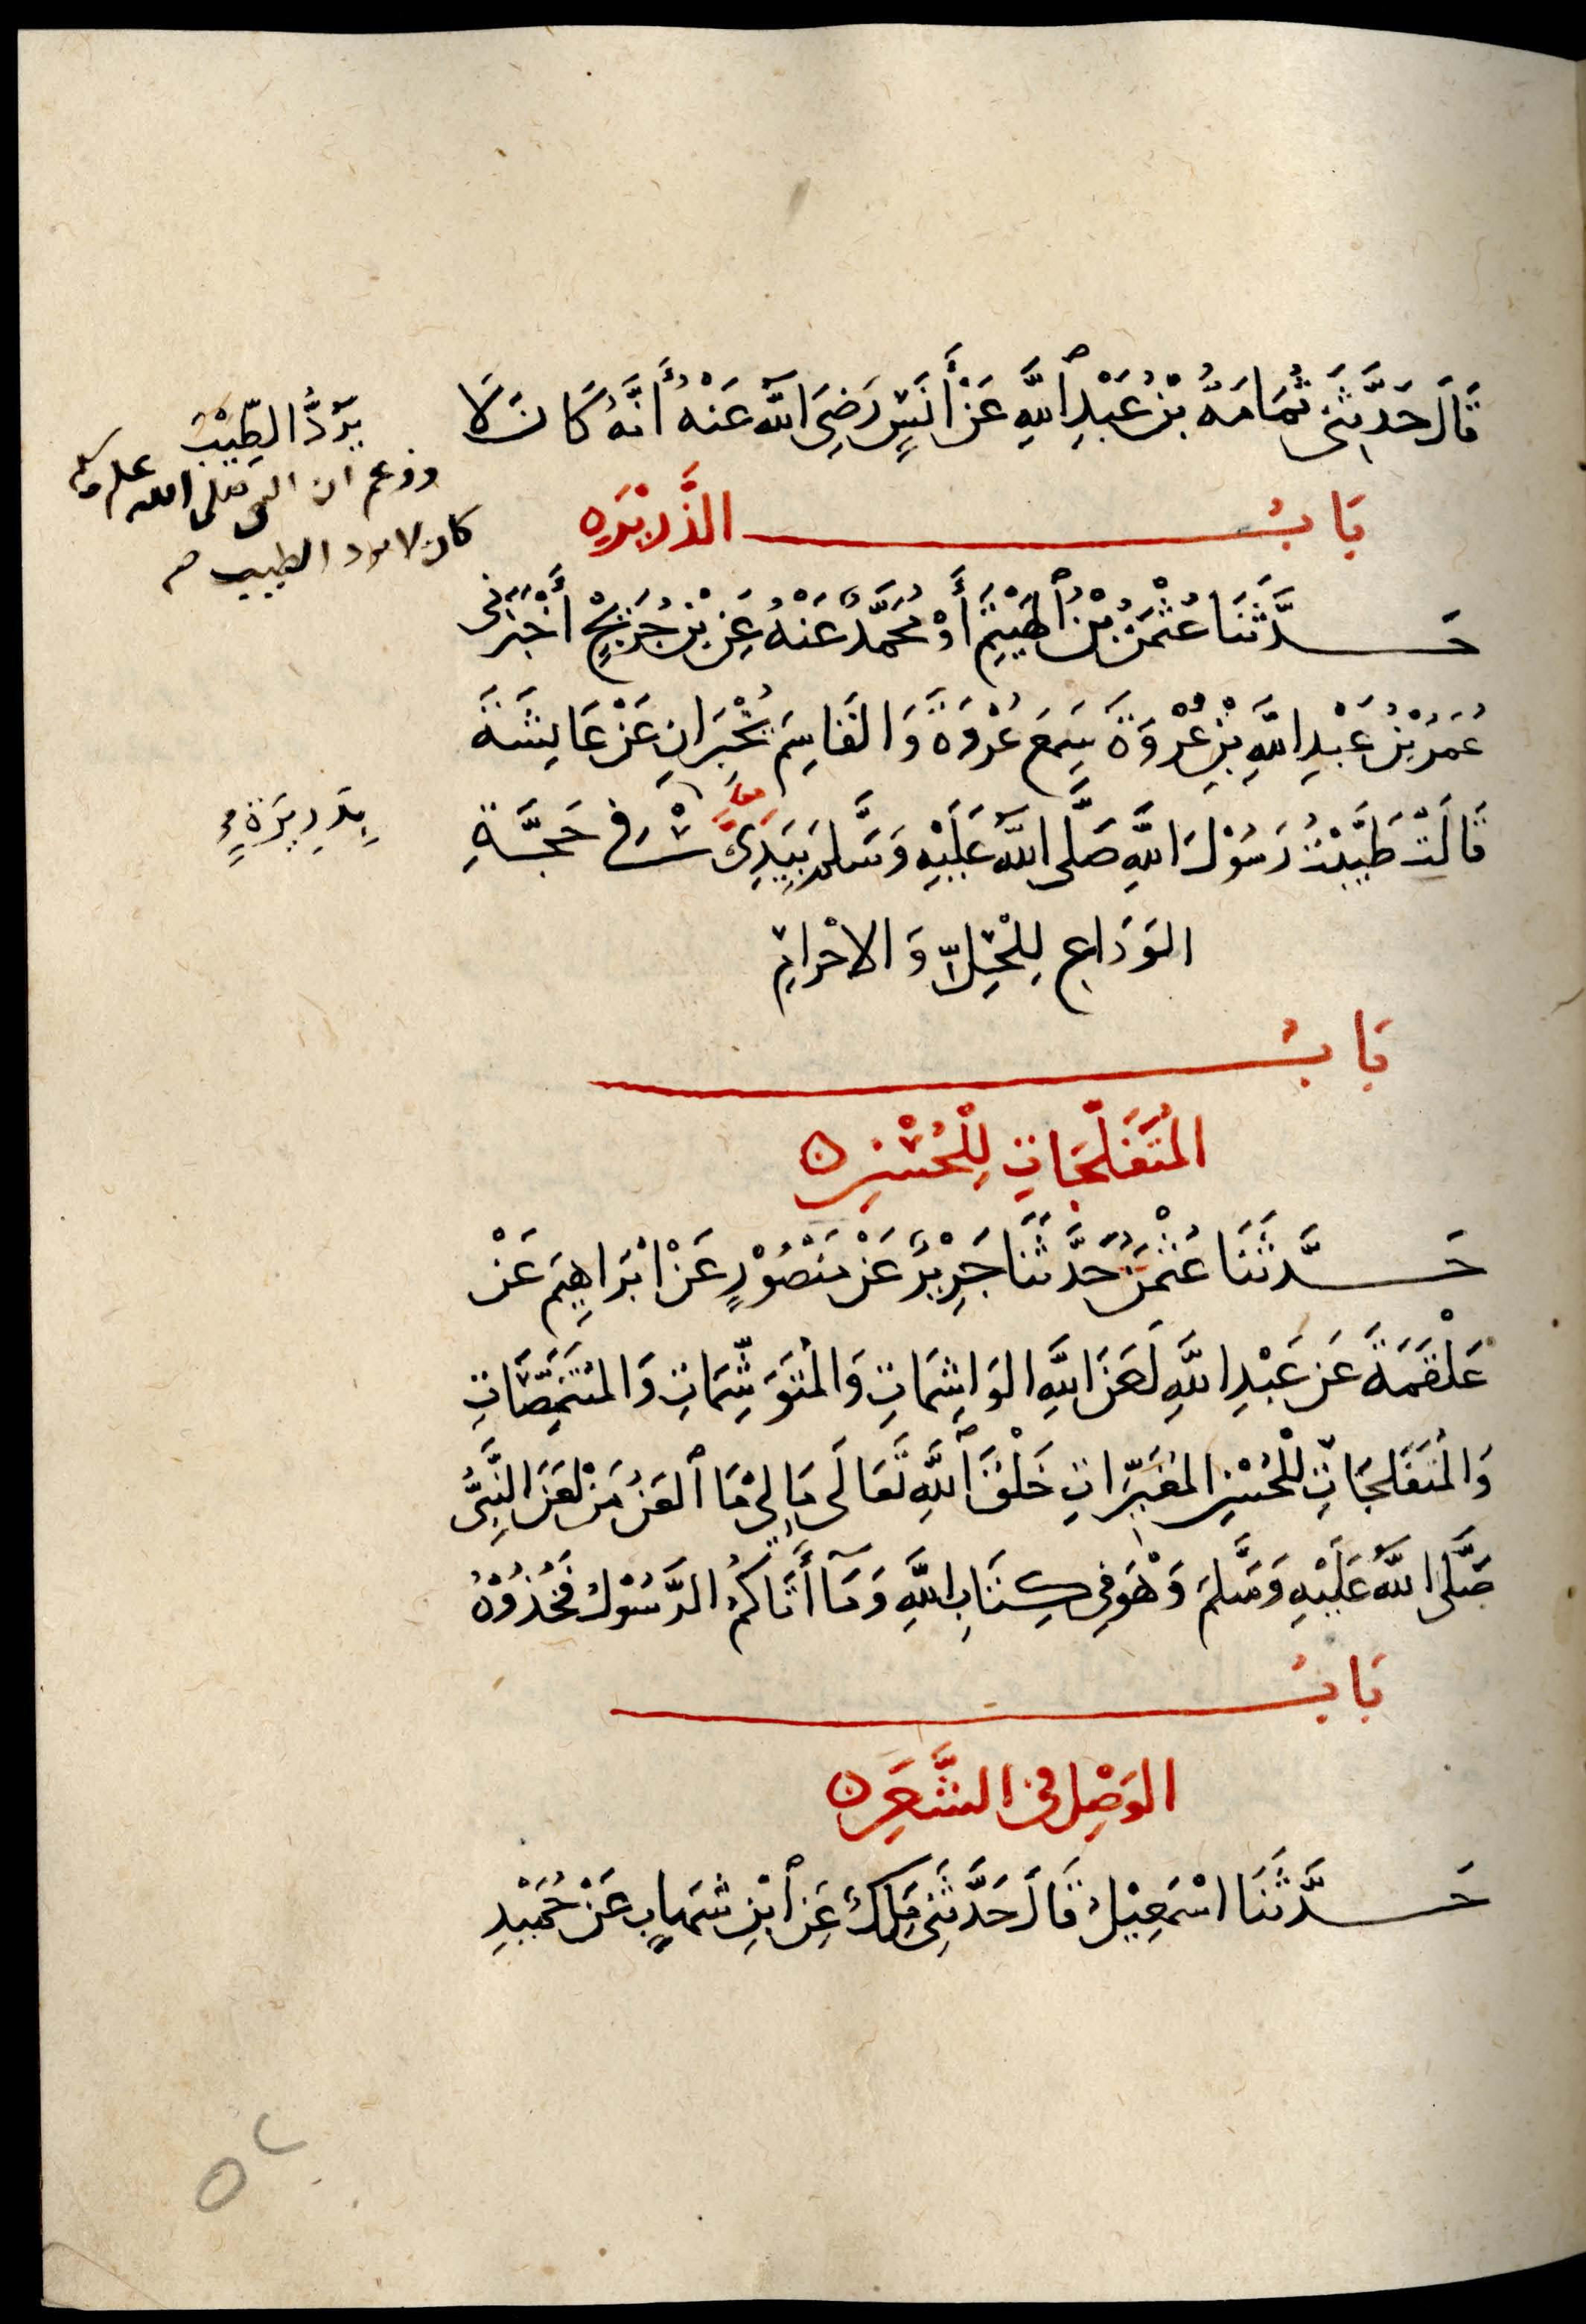 قَالَ حَدَّثَنِي ثُمَامَةُ بْنُ عَبْدِ اللَّهِ عَنْ أَنَسٍ رَضِيَ اللَّهُ عَنْهُ أَنَّهُ كَانَ لَا
يَرُدُّ الطِّيْبَ
وزعم ان النبي صلى الله عليه وسلم
كان لا يرد الطيب
بَابُ الذَّرِيْرَه
حَدَّثَنَا عُثْمَنُ بْنُ الْهَيْثَمِ أَوْ مُحَمَّدٌ عَنْهُ عَنِ بْنِ جُرَيْجٍ أَخْبَرَنِي
عُمَرُ بْنُ عَبْدِ اللَّهِ بْنِ عُرْوَةَ سَمِعَ عُرْوَةَ وَالقَاسِمَ يُخْبِرَانِ عَنْ عَايِشَةَ
قَالَتْ طَيَّبْتُ رَسُوْلَ اللَّهِ صَلَّى اللَّهُ عَلَيْهِ وَسَلَّمَ بِيَدَيَّ فِي حَجَّةِ
بِذَرِيرَةٍ
الوَدَاعِ لِلْحِلِّ وَالاحْرَامِ
بَابُ
المُتَفَلِّجَاتِ لِلْحُسْنِ
حَدَّثَنَا عُثْمَنُ حَدَّثَنَا جَرِيْرٌ عَنْ مَنْصُوْرٍ عَنْ ابْرَاهِيمَ عَنْ
عَلْقَمَةَ عَن عَبْدِ اللَّهِ لَعَنَ اللَّهُ الوَاشِمَاتِ وَالمُتَوَشِّمَاتِ وَالمُتَنَمِّصَاتِ
وَالمُتَفَلِّجَاتِ لِلْحُسْنِ المُغَيِّرَاتِ خَلْقَ اللَّهِ تَعَالَى مَالِي مَا العَنُ مَنْ لَعَنَ النَّبِيُّ
صَلَّى اللَّهُ عَلَيْهِ وَسَلَّمَ وَهْوَ فِي كِتَابِ اللَّهِ وَمَآ أَتَاكُمُ الرَّسُوْلُ فَخُذُوْهُ
بَابُ
الوَصْلِ في الشَّعَرِ
حَدَّثَنَا اسْمَعِيْلُ قَالَ حَدَّثَنِي مَلِكٌ عَنِ ابْنِ شِهَابٍ عَنْ حُمَيْدِ